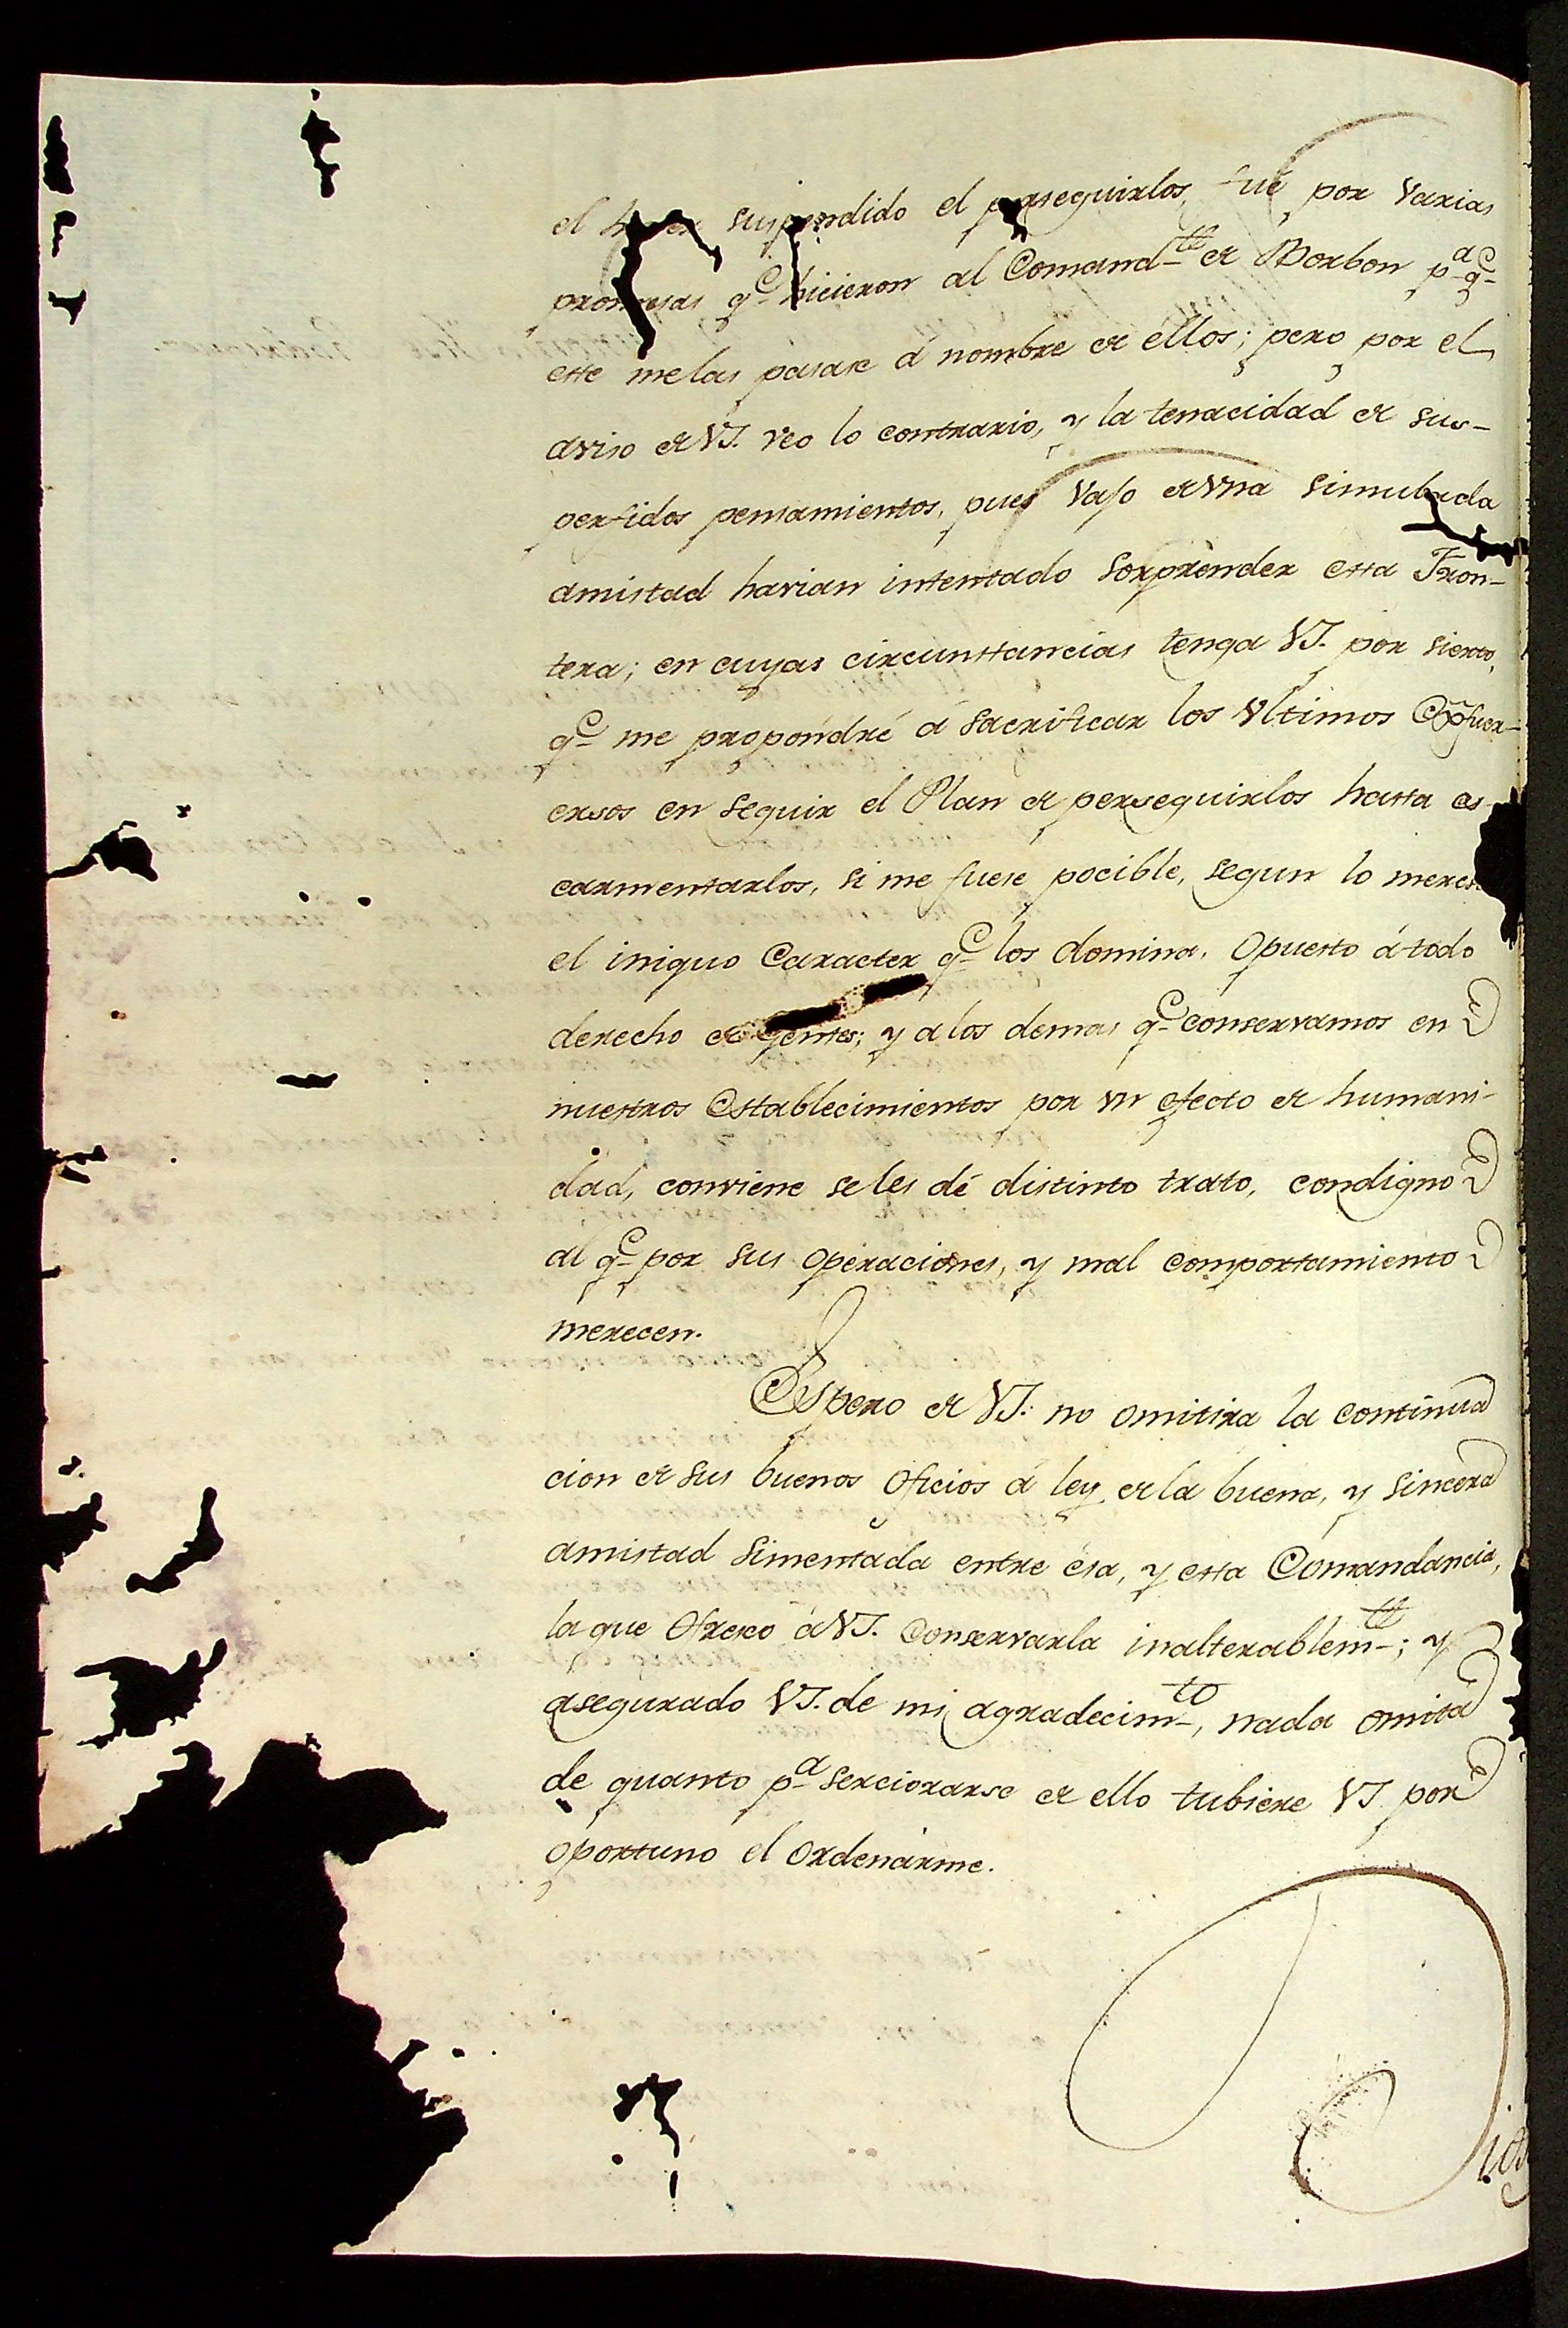 el haver suspendido el perseguirlos, fue por varias
promesas q.e hicieron al Comand.te de Borbon p.a q.e
este melas pasase á nombre de ellos; pero por el
aviso de VS. veo lo contrario, y la tenacidad de sus
perfidos pensamientos, pues vajo de vna simulada
amistad havian intentado sorprender esta Fron-
tera; en cuyas circunstancias tenga VS. por sierto,
q.e me propondré á sacrificar los vltimos
en seguir el Plan de perseguirlos hasta es-
carmentarlos, si me fuese pocible, segun lo merese
el iniquo Caracter q.e los domina, Opuesto á todo
derecho de gentes; y alos demas q.e conservamos en
nuestros Establecimientos por vn efecto de humani-
dad, conviene seles dé distinto trato, condigno
al q.e por sus operaciones, y mal comportamiento
merecen.
Espero de VS. no omitira la continua
cion de sus buenos Oficios á ley dela buena, y sincera
amistad simentada entre ésa, y esta Comandancia,
la que Ofresco á VS. Conservarla inalterablem.te; y
asegurado VS. de mi agradecim.to, nada omita
de quanto p.a serciorarse de ello tubiere VS. por
oportuno el ordenarme.
Dios